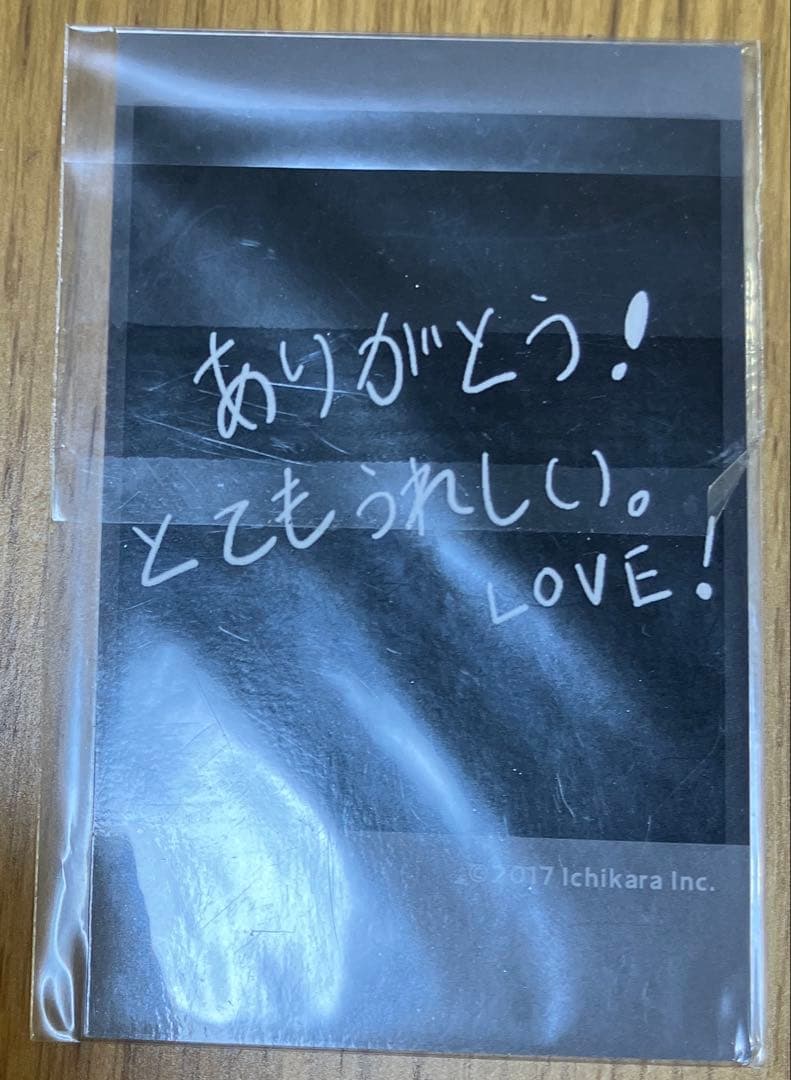 ありがとう!
とてもうれしい。
LOVE!
© 2017 Ichikara Inc.